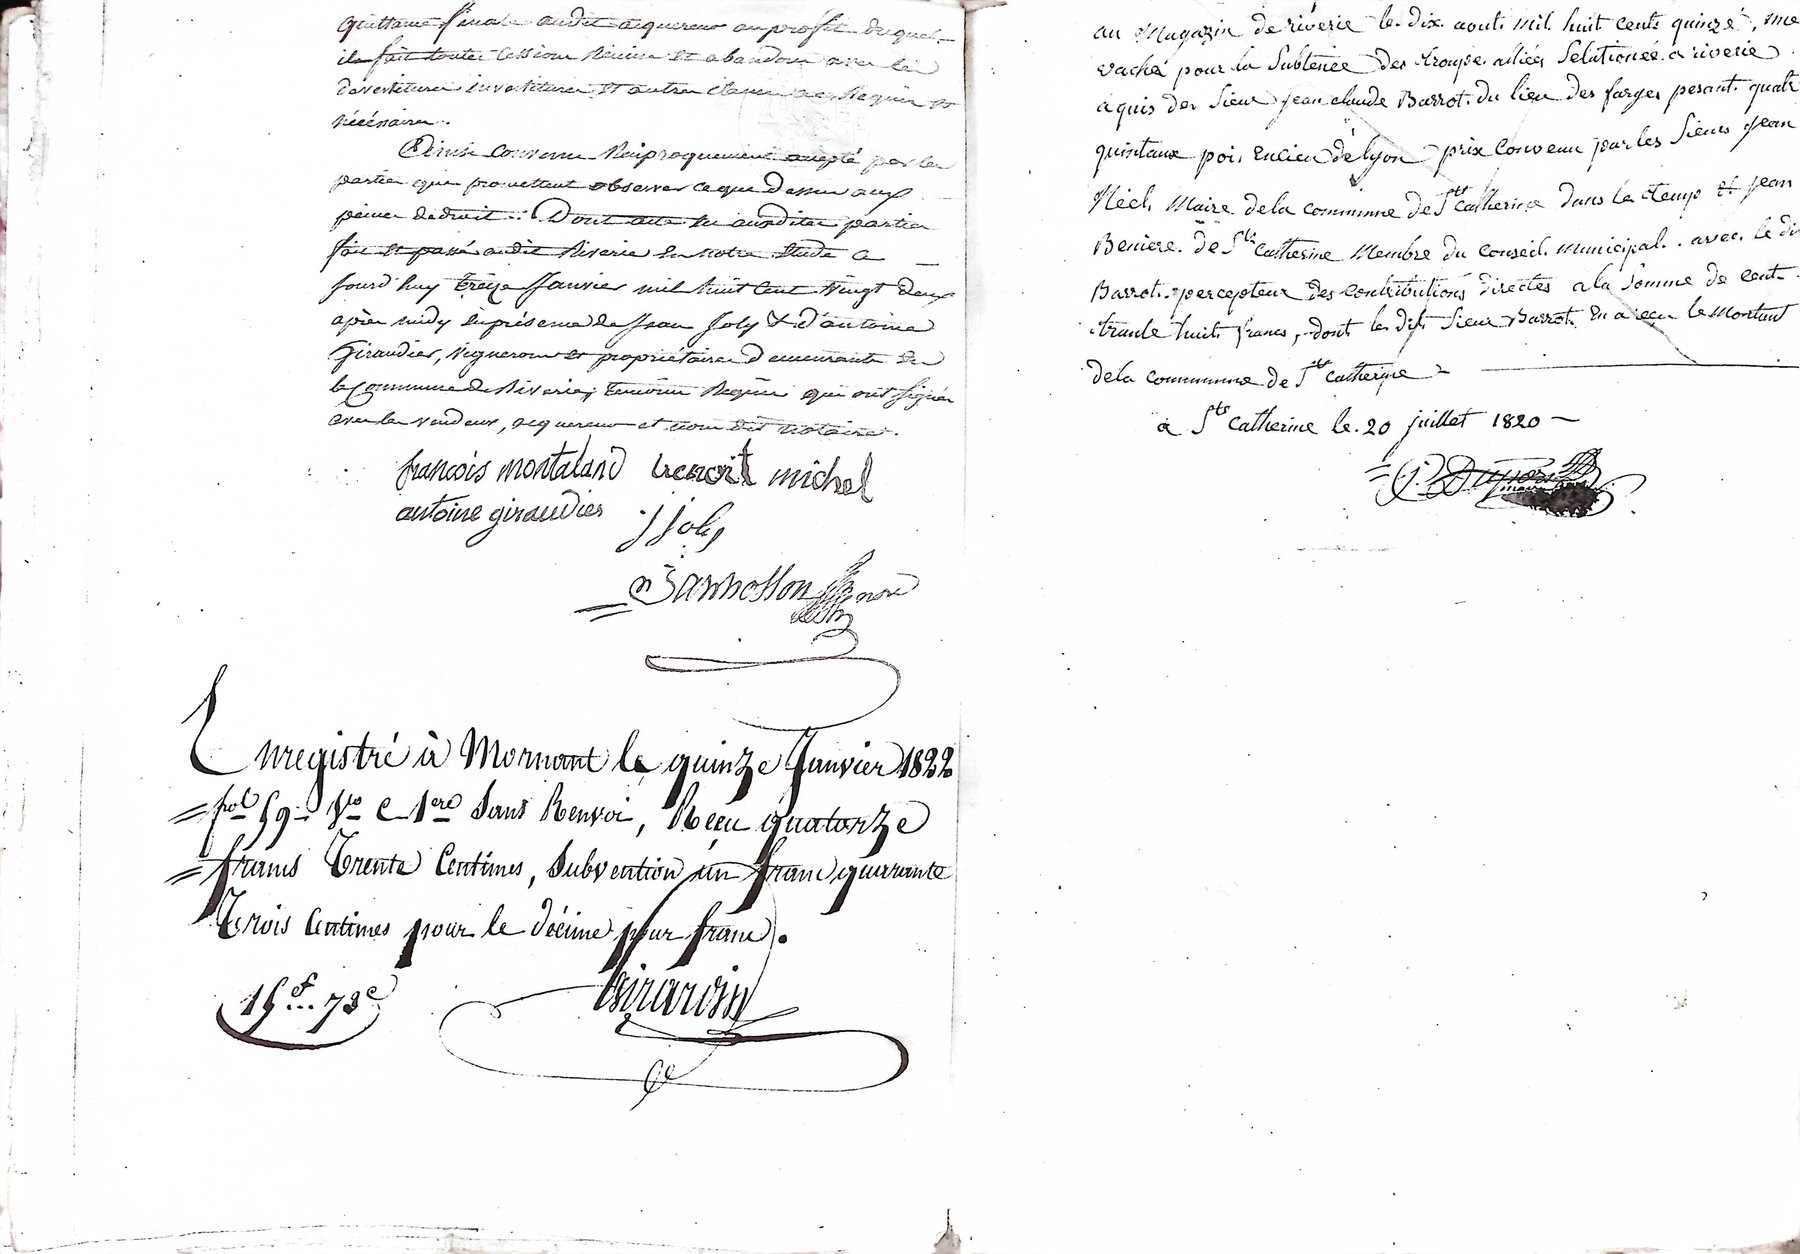 quittance finale audit acquereur au profit duquel
il fait toute Cession Remise et abandon avec les
devestiture investiture et autres clauses a ce Requises et
nécésaires.
Ainsi convenu Réciproquement accepté par les
parties qui promettent observer ce que dessus aux
peines de droit... Dont acte lu auxdites parties
fait et passé audit Riverie en notre Etude a
jourd'huy treize Janvier mil huit cent vingt deux
après midy en présence de Jean Joly & d'antoine
Giraudier, vigneron et propriétaire demeurants en
la Commune de Riverie, temoins Requis qui ont signé
avec les vendeur, acquereur et nous dit notaire.
francois montaland benoit michel
antoine giraudier J Joly
nore
Enregistré à Mornant le quinze Janvier 1822
fol 59 Vo C 1ere Sans Renvoi, Reçu quatorze
francs Trente Centimes, Subvention un franc quarante
Trois Centimes pour le décime pour franc.
15f... 73c Girardin
au Magazin de riverie le dix aout mil huit cents quinze, me
vache pour la Subtenée des troupe alliées Selationée a riverie
aquis der Sieur jean claude Barrot du lieu des farges pesant quatr
quintaux pois encien de lyon prix convenu par les Sieurs Jean
Néel Maire de la commune de Ste Catherine dans le temp et jean
Beniere de Ste Catherine Membre du conseil municipal. avec le di
Barrot percepteur des contributions directes a la Somme de cent
trante huit francs, dont le dit Sieur Barrot en a reçu le montant
de la commune de Ste Catherine
a Ste Catherine le 20 juillet 1820